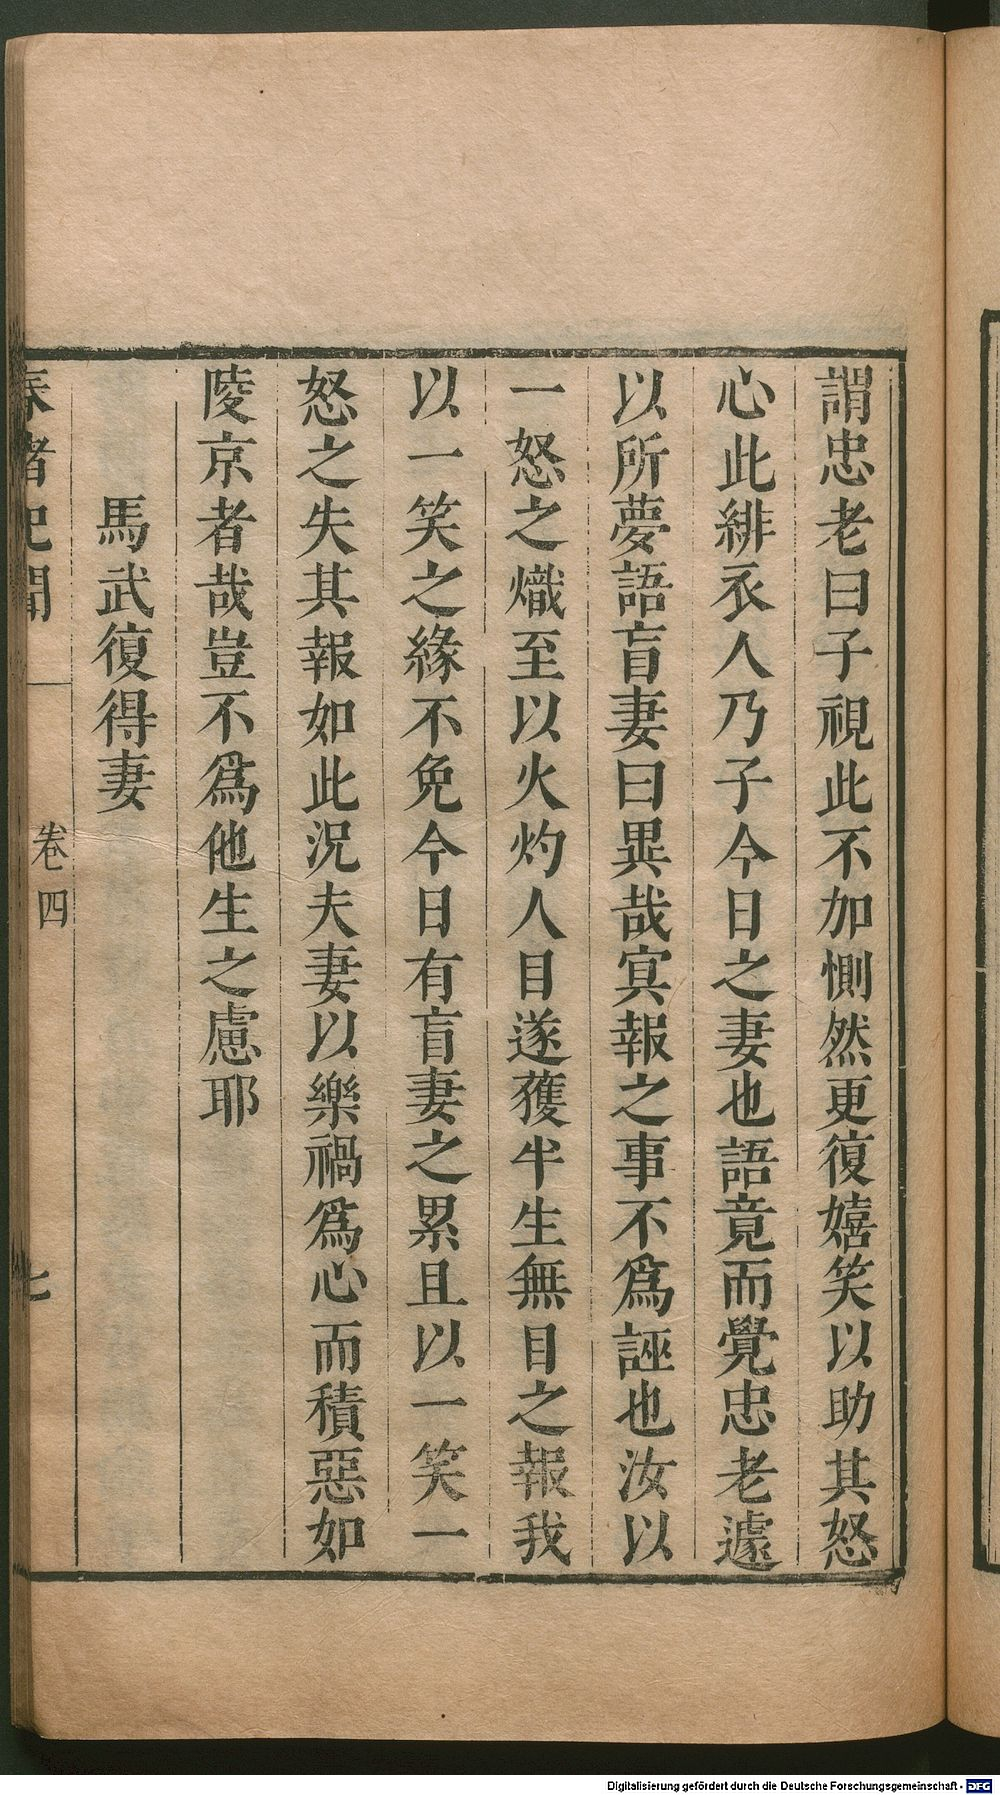 謂忠老曰子視此不加惻然更復嬉笑以助其怒
心此緋衣人乃子今日之妻也語竟而覺忠老遽
以所夢語盲妻曰異哉㝠報之事不爲誣也汝以
一怒之熾至以火灼人目遂獲半生無目之報我
以一笑之緣不免今日有盲妻之累且以一笑一
怒之失其報如此況夫妻以樂禍爲心而積惡如
陵京者哉豈不爲他生之慮耶
馬武復得妻
春渚紀聞
卷四
七
Digitalisierung gefördert durch die Deutsche Forschungsgemeinschaft - DFG